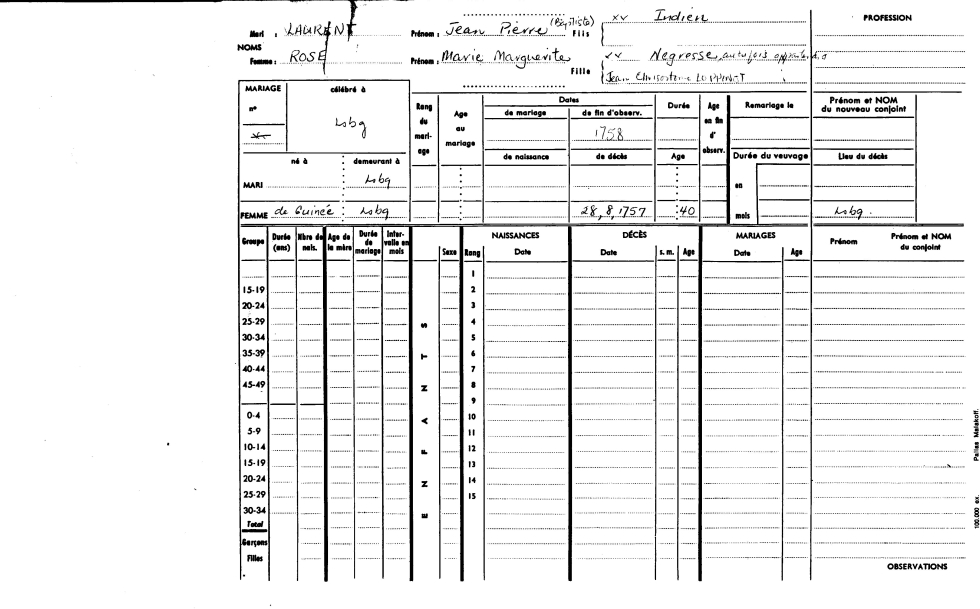 Mari : LAURENT Prénom : Jean Pierre (Baptiste) Fils xx Indien PROFESSION
NOMS
Femme : ROSE Prénom : Marie Marguerite Fille xx Negresse, autrefois
Jean
MARIAGE célébré à Rang du mariage Age au mariage Dates Durée Age en fin d'observ. Remariage le Prénom et NOM du nouveau conjoint
n° de mariage de fin d'observ.
Lsbg 1758
de naissance de décès Age Durée du veuvage Lieu du décès
né à demeurant à
MARI Lsbg en
FEMME de Guinée Lsbg 28,8,1757 40 mois Lsbg.
Groupe Durée (ans) Nbre de nais. Age de la mère Durée de mariage Intervalle en mois NAISSANCES DÉCÈS MARIAGES Prénom Prénom et NOM du conjoint
Sexe Rang Date Date s. m. Age Date Age
1
15-19 2
20-24 3
25-29 4
30-34 5
35-39 6
40-44 7
45-49 8
9
0-4 10
5-9 11
10-14 12
15-19 13
20-24 14
25-29 15
30-34
Total
Garçons
Filles
ENFANTS
OBSERVATIONS
100.000 ex. Malakoff.